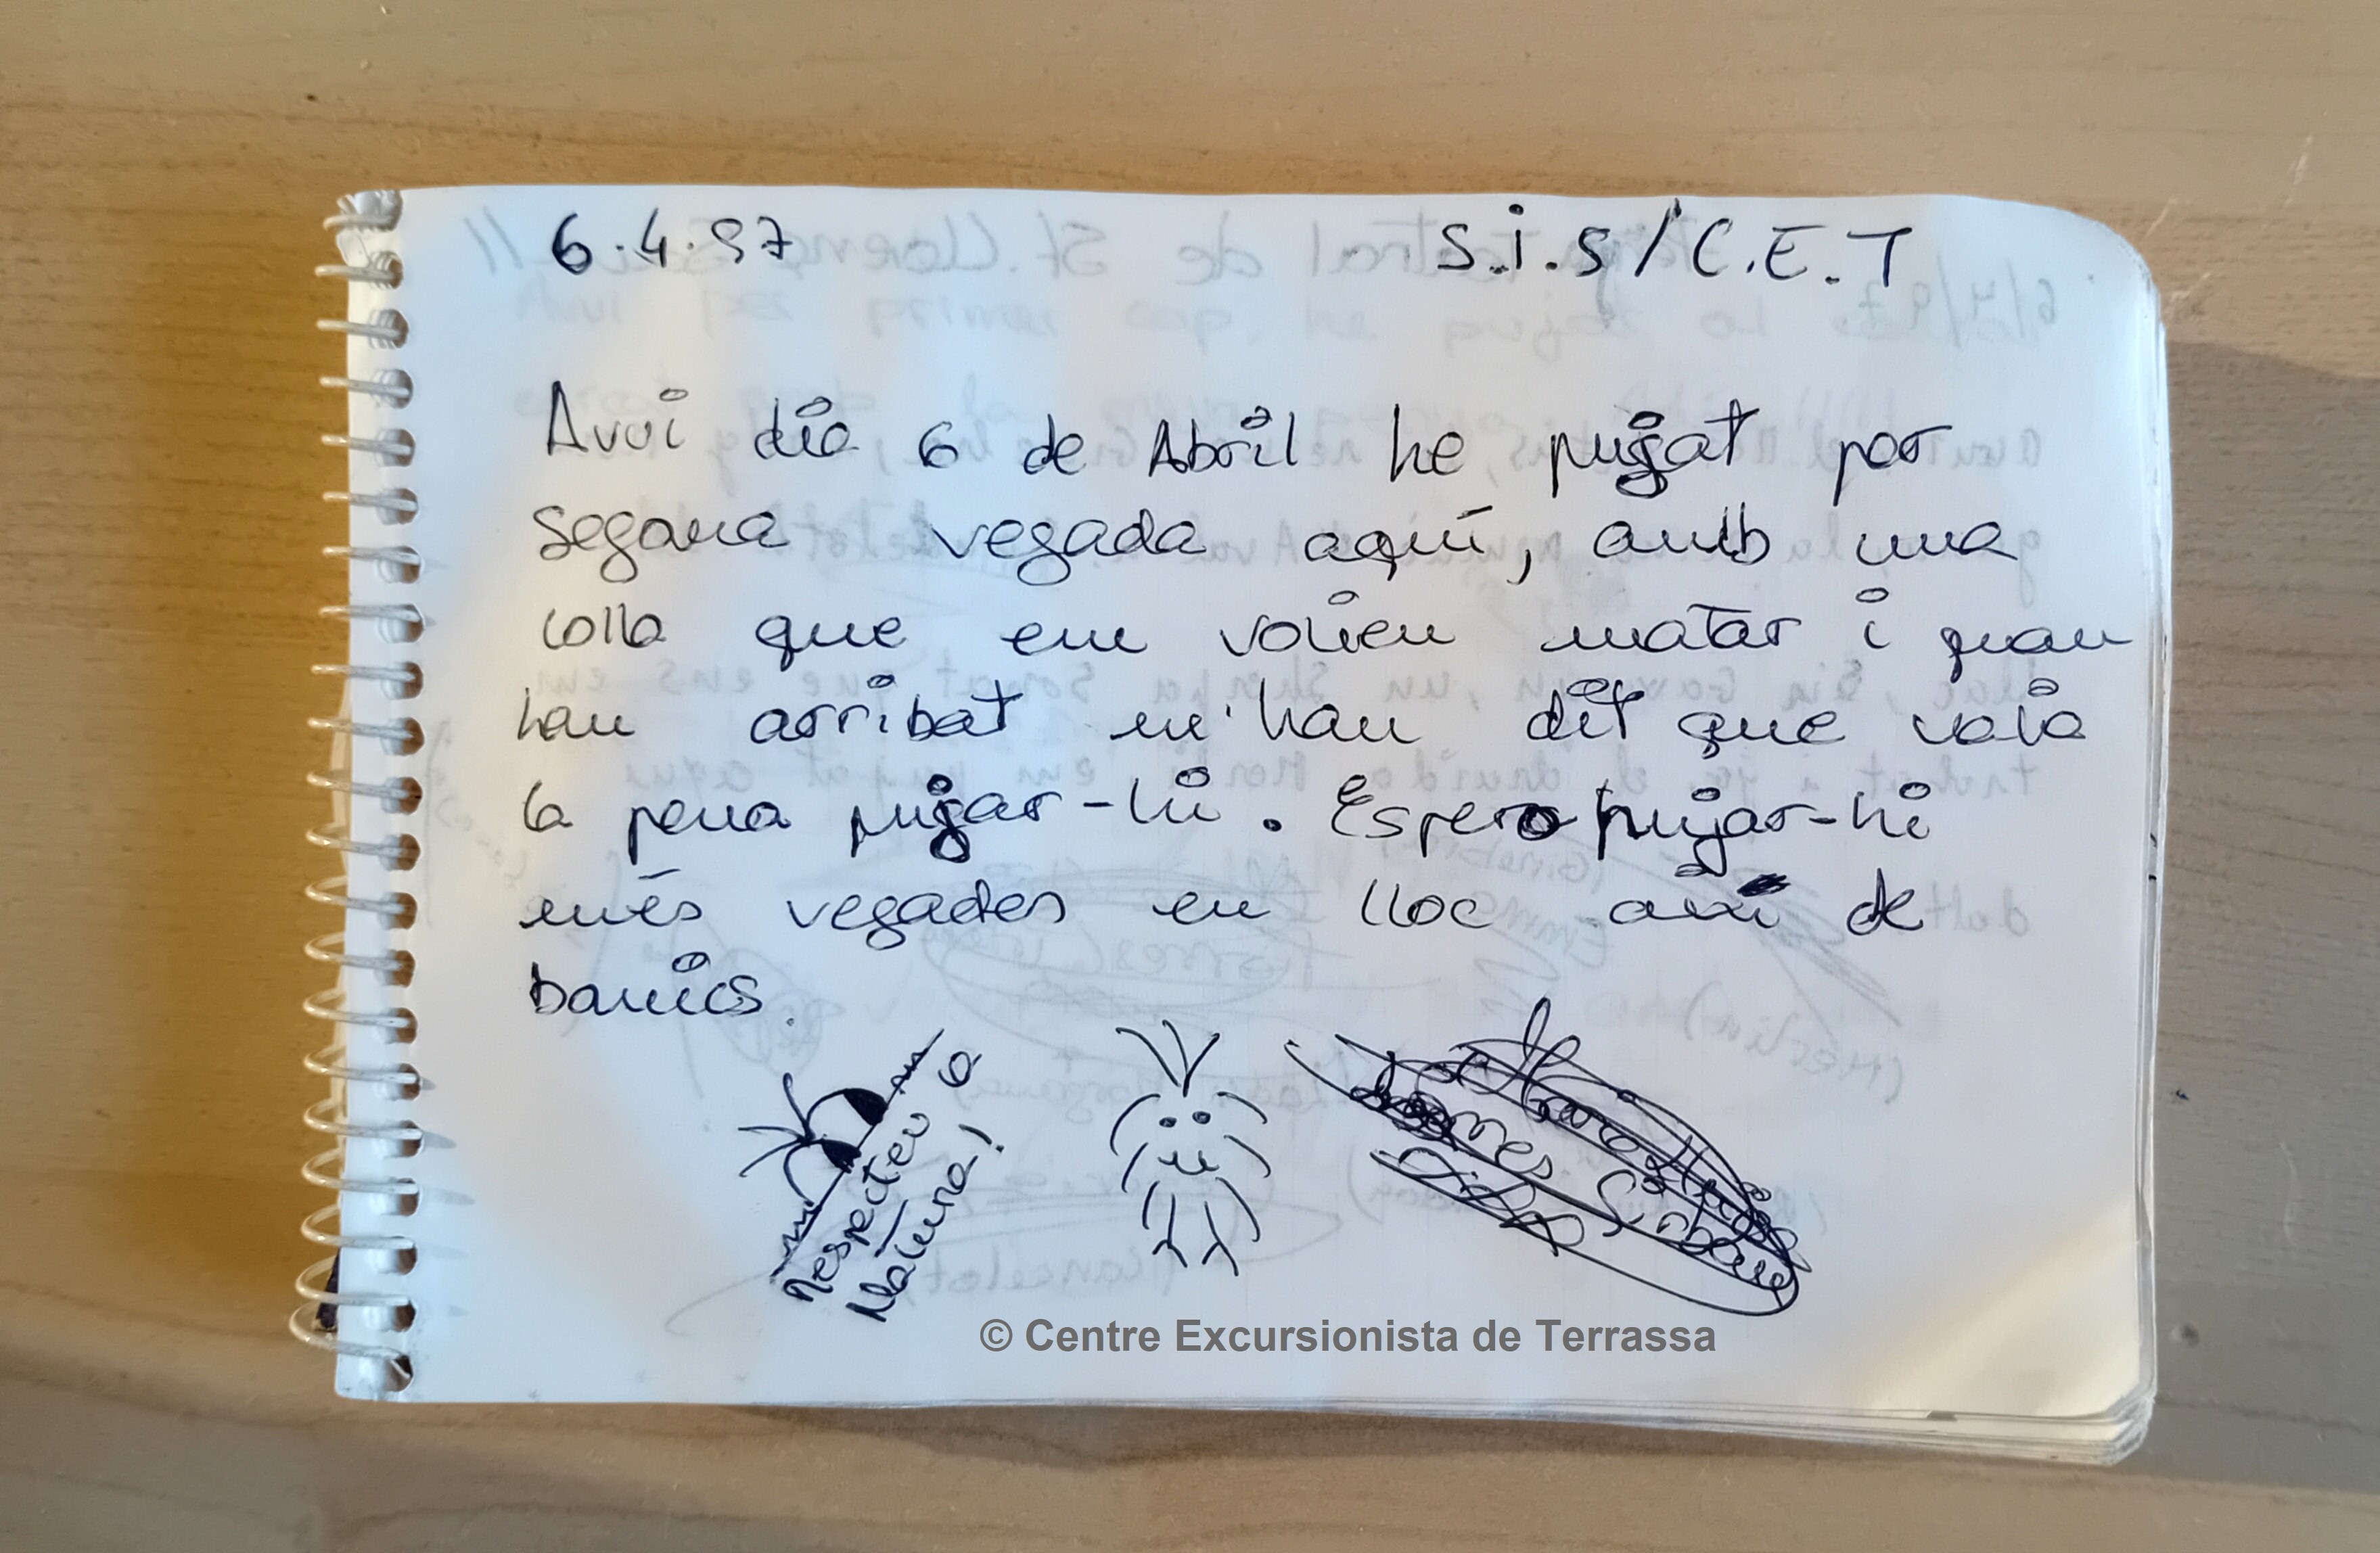 6.4.97
S.i.S/C.E.T
Avui día 6 de Abril he pujat per
segona vegada aquí, amb una
colla que em volien matar i quan
han arribat m'han dit que valia
la pena pujar-hi. Espero pujar-hi
més vegades en lloc així de
bonics.
Respecteu la
Natura!
© Centre Excursionista de Terrassa